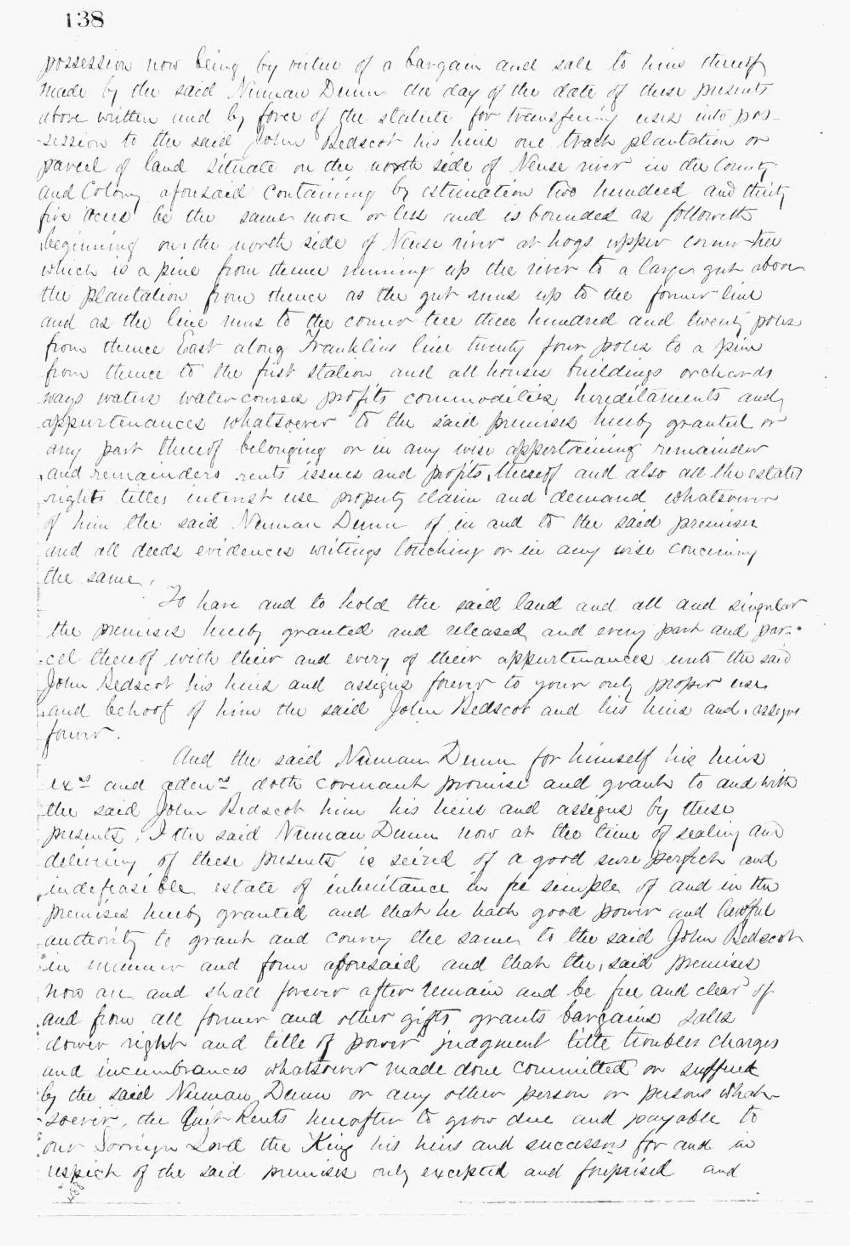 138
possession now being by virtue of a bargain and sale to him thereof
made by the said Numan Dunn the day of the date of these presents
above written and by force of the statute for transfering uses into pos-
-session to the said John Bedscot his heirs one track plantation or
parcel of land situate on the north side of Neuse river in the County
and Colony aforesaid containing by estimation two hundred and thirty
five acres be the same more or less and is bounded as followeth
beginning on the north side of Neuse river at hogs upper corner tree
which is a pine from thence running up the river to a large gut above
the plantation from thence as the gut runs up to the former line
and as the line runs to the corner tree three hundred and twenty poles
from thence East along Franklins line twenty four poles to a pine
from thence to the first station and all houses buildings orchards
ways waters water-courses profits commodities hereditaments and
appurtenances whatsoever to the said premises hereby granted or
any part thereof belonging or in any wise appertaining remainder
and remainders rents issues and profits thereof and also all the estate
rights titles interest use property claim and demand whatsoever
of him the said Numan Dunn of in and to the said premises
and all deeds evidences writings touching or in any wise concerning
the same.
To have and to hold the said land and all and singular
the premises hereby granted and released and every part and par-
-cel thereof with their and every of their appurtenances unto the said
John Bedscot his heirs and assigns forever to your only proper use
and behoof of him the said John Bedscot and his heirs and assigns
forever.
And the said Numan Dunn for himself his heirs
exs and adems doth covenant promise and grant to and with
the said John Bedscot him his heirs and assigns by these
presents, I the said Numan Dunn now at the time of sealing and
delivering of these presents is seized of a good sure perfect and
indefeasible estate of inheritance in fee simple of and in the
premises hereby granted and that he hath good power and lawful
authority to grant and convey the same to the said John Bedscot
in manner and form aforesaid and that the said premises
now are and shall forever after remain and be free and clear of
and from all former and other gifts grants bargains sales
dower right and title of power judgment title troubles charges
and incumbrances whatsoever made done committed or suffered
by the said Numan Dunn or any other person or persons what-
soever, the Quit Rents hereafter to grow due and payable to
our Sovreign Lord the King his heirs and successors for and in
respect of the said premises only excepted and foreprised and